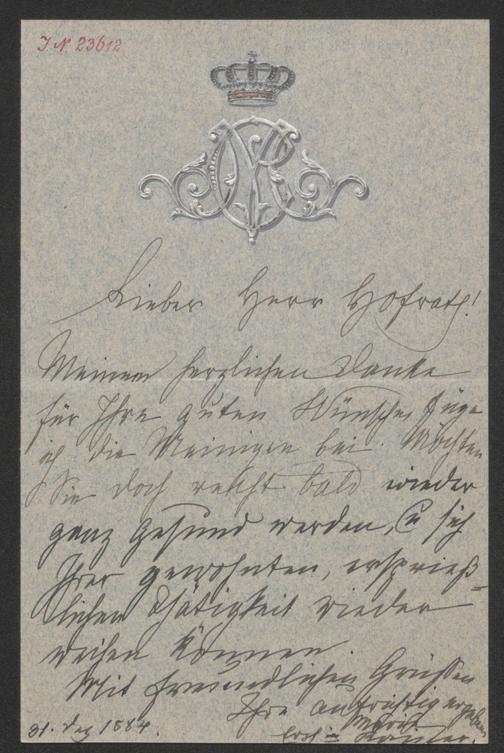 I. N. 23612
Lieber Herr Hofrath!
Meinem herzlichen Danke
für Ihre guten Wünsche, füge
ich die Meinigen bei. Möchten
Sie doch recht bald wieder
ganz gesund werden, & sich
Ihrer gewohnten, ersprieß-
lichen Thätigkeit wieder
weihen können.
Mit freundlichen Grüssen
Ihre aufrichtig ergebene
31. Dez 1884.